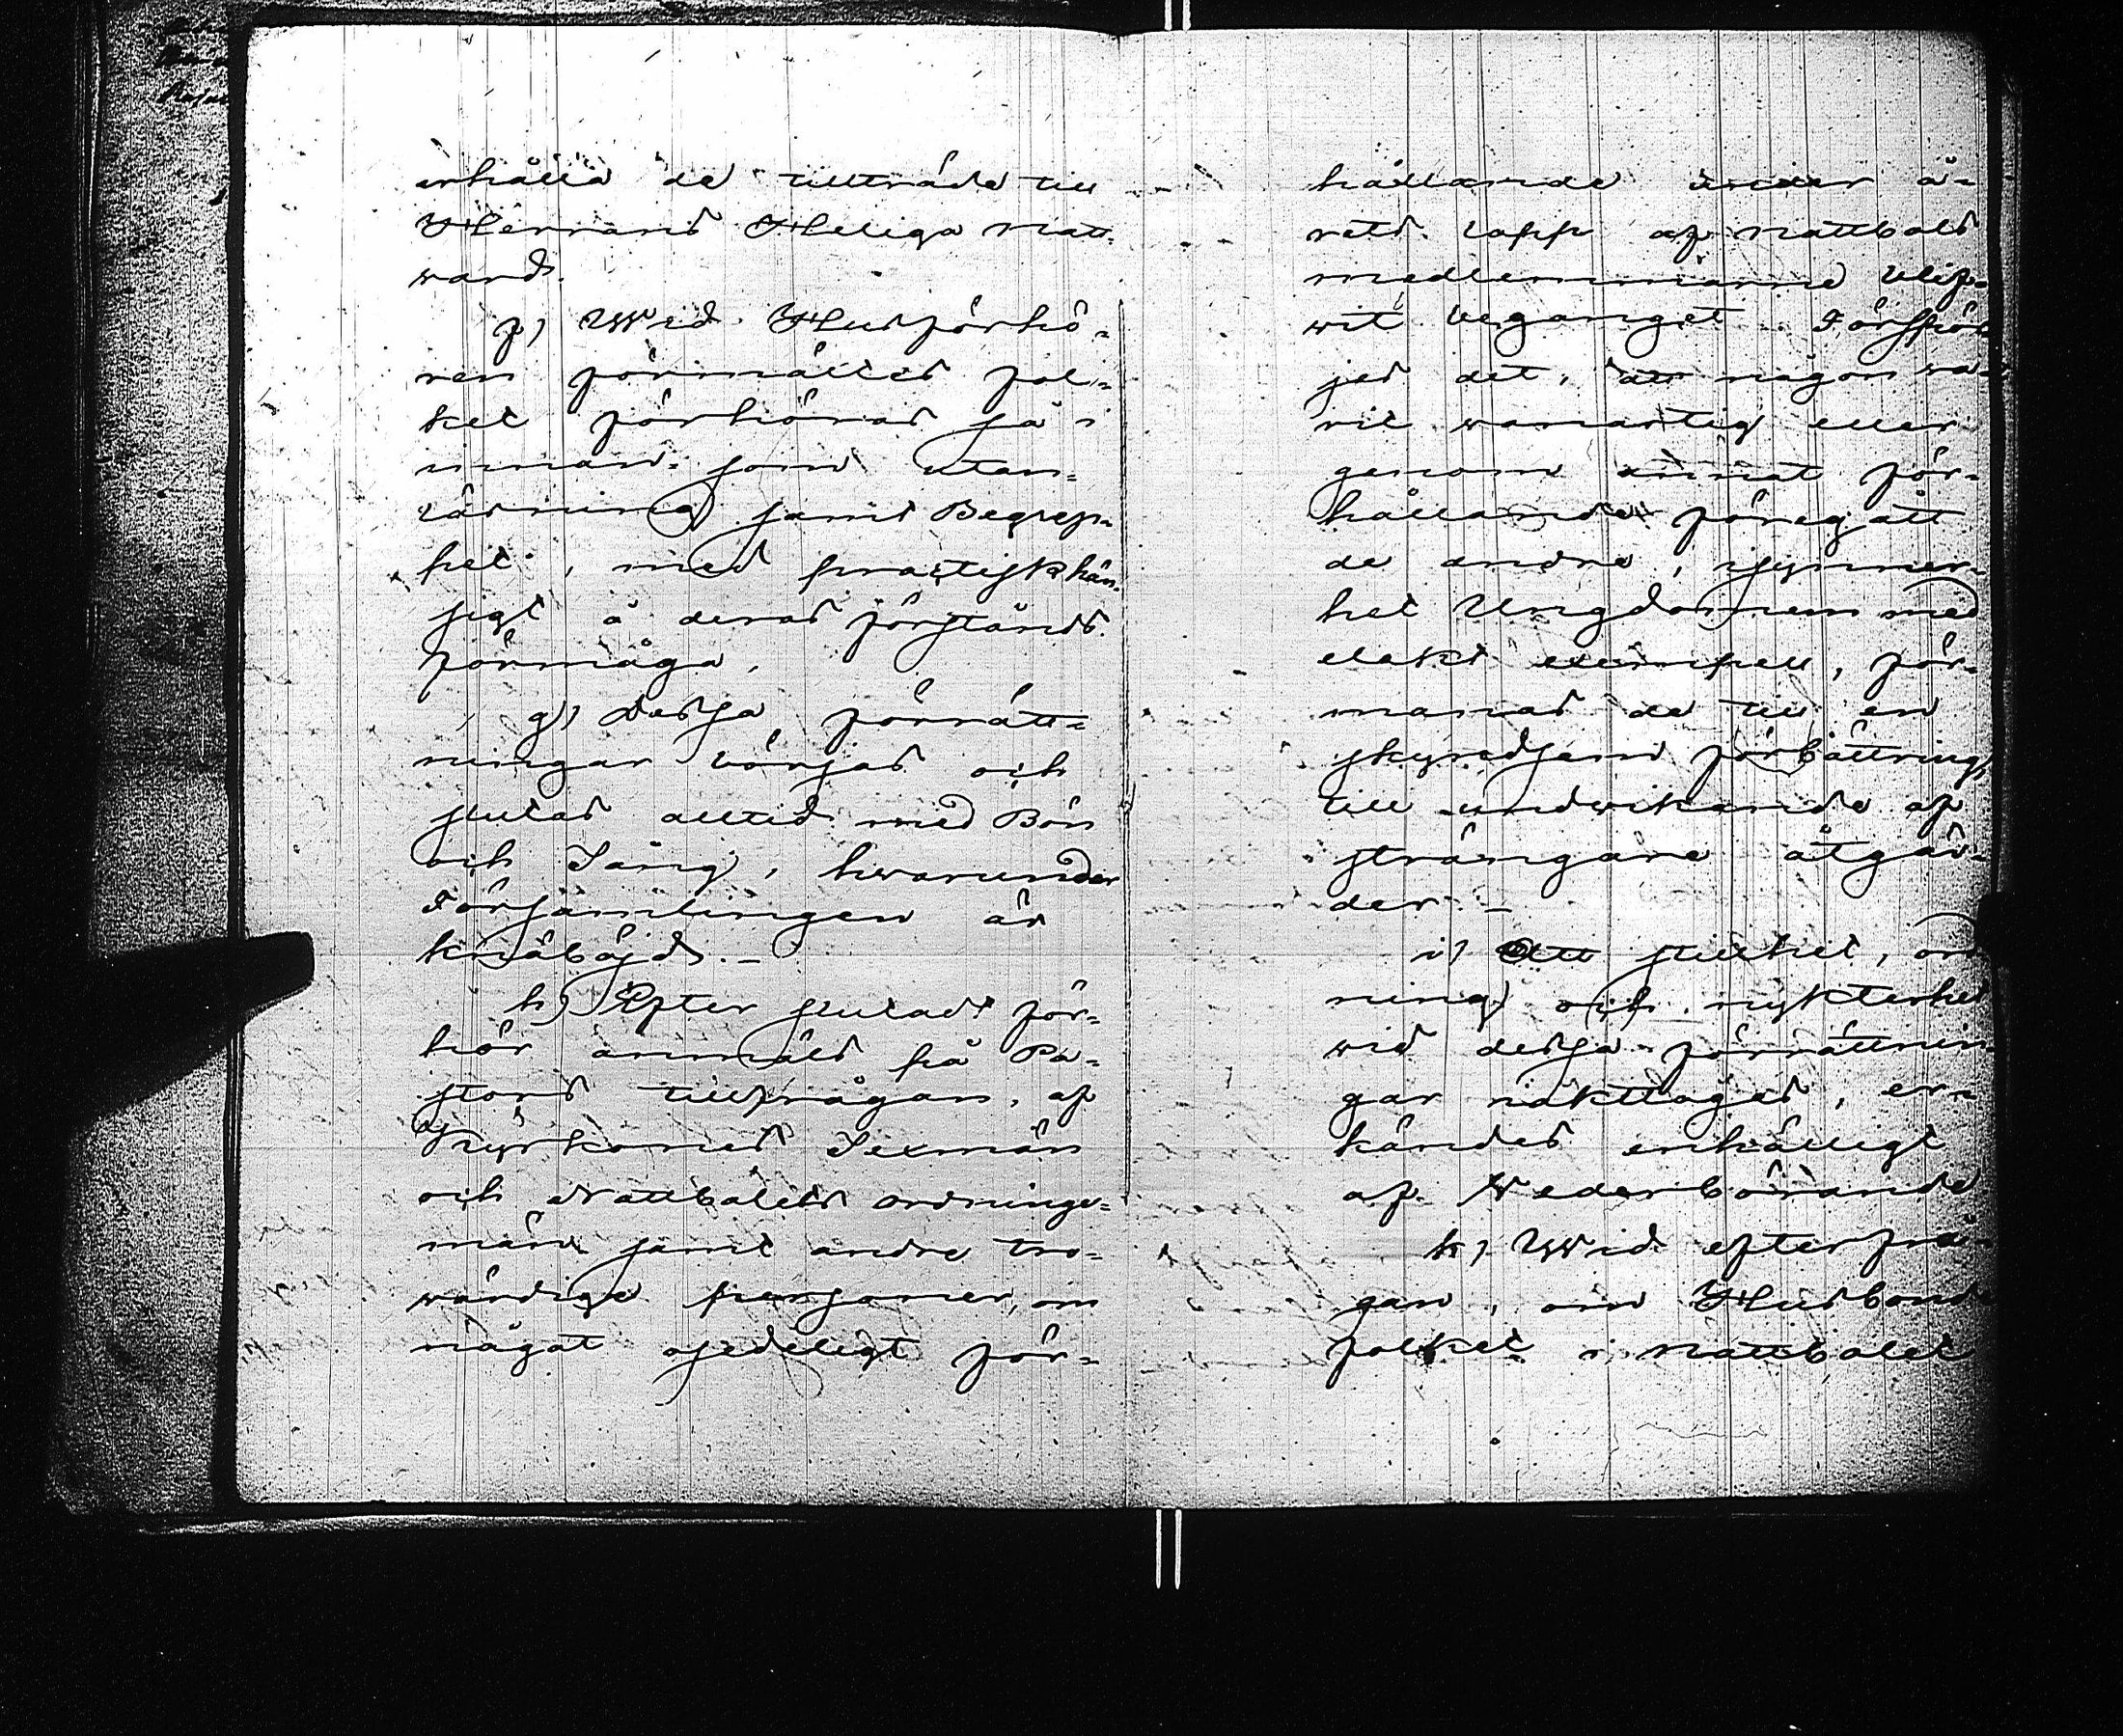 erhålla de tillträde till
Herrans Heliga Natt-
ward.
f) Wid Husförhö-
ren förmältes fol-
ket förhöras så i
innan- som utan-
läsning samt Begrep-
het, med practisk hän-
sigt å deras förstånds-
förmåga.
g) Dessa förrätt-
ningar börjas och
slutas alltid med Bön
och Sång, hwarunder
Församlingen är
knäböjd. -
h) Efter slutadt för-
hör anmäls på Pa-
stors tillfrågan, af
Kyrkones Sexmän
och Nattbolets ordnings-
män samt andre tro-
wärdige personer, om
något osedeligt för-
hållande under å-
rets lopp af Nattbols
medlemmarne blif-
wit beganget. Försspör-
jes det, att någon wa-
rit wanartig eller
genom annat för-
hållande föregått
de andre, isynner-
het Ungdomen med
elakt exempell, för-
manas de till en
skyndsam förbättring,
till undwikande af
strängare åtgär-
der. -
i) Att stillhet, ord-
ning och nykterhet
wid dessa förrättnin-
gar iakttages, er-
kändes enhälligt
af Wederbörande
k) Wid efterfrå-
gan, om Husbonde
folket i Nattbolet